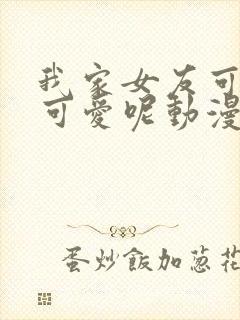 我家女友可
可愛呢動漫
蛋炒飯加蔥花